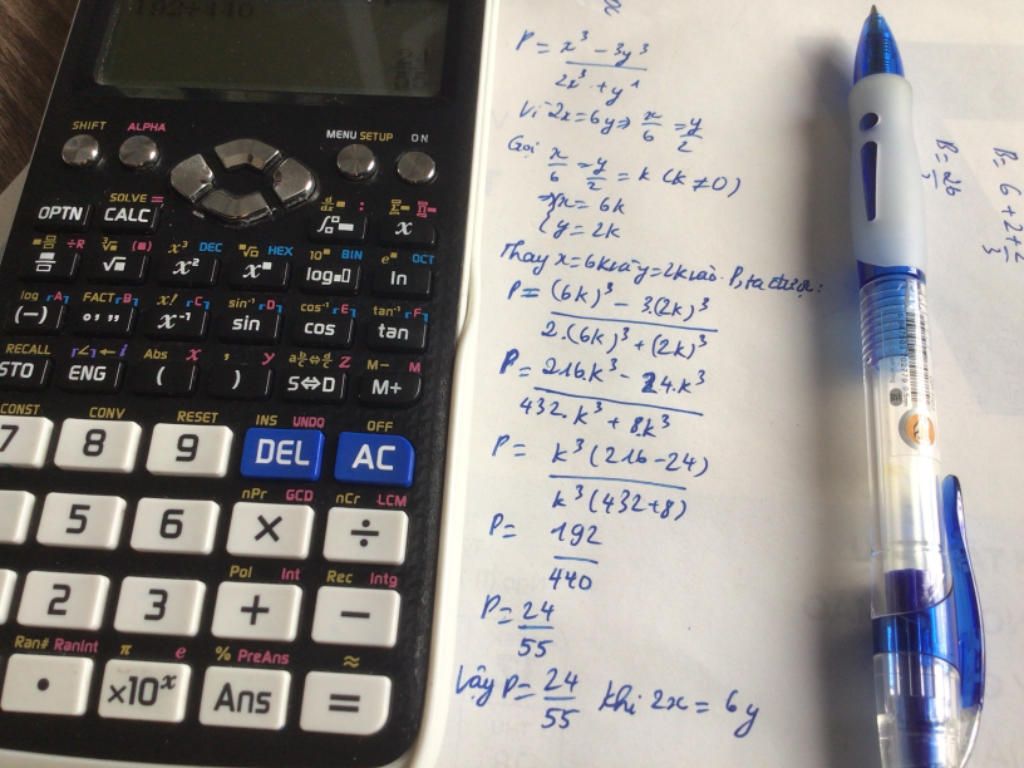 192÷440
SHIFT ALPHA MENU SETUP ON
SOLVE =
OPTN CALC x
÷R x³ DEC HEX BIN OCT
x² log ln
log A FACT B x! C sin⁻¹ D cos⁻¹ E tan⁻¹ F
(−) °'" x⁻¹ sin cos tan
RECALL ∠ ← i Abs x , y Z M− M
STO ENG ( ) S⇔D M+
CONST CONV RESET INS UNDO OFF
7 8 9 DEL AC
nPr GCD nCr LCM
5 6 × ÷
Pol Int Rec Intg
2 3 + −
Ran# RanInt π e % PreAns ≈
• ×10ˣ Ans =
P = x³ − 3y³
2x³ + y³
Vì 2x = 6y ⇒ x/6 = y/2
Gọi x/6 = y/2 = k (k ≠ 0)
⇒ { x = 6k
{ y = 2k
Thay x = 6k và y = 2k vào P, ta được:
P = (6k)³ − 3.(2k)³
2.(6k)³ + (2k)³
P = 216.k³ − 24.k³
432.k³ + 8.k³
P = k³(216 − 24)
k³(432 + 8)
P = 192
440
P = 24
55
Vậy P = 24/55 khi 2x = 6y
B = 26
B = 6 + 2 + 2
3